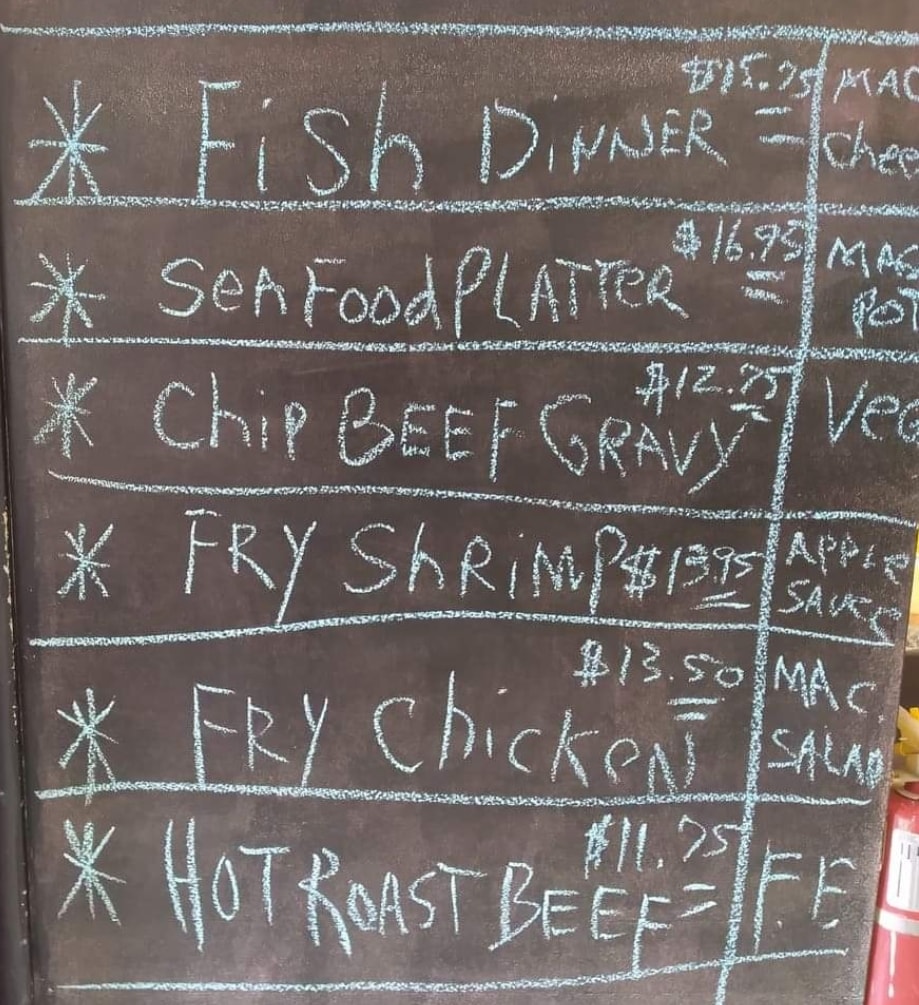 $15.75 MAC
* Fish DiNNER Chee
$16.95 MAC
* SeAFood PLATTER POT
$12.75
* Chip BEEF GRAVY Veg
* FRY ShRiMP $13.95 APPLE
SAUCE
$13.50 MAC
* FRY ChickeN SALAD
$11.75
* HOT ROAST BEEF F.F